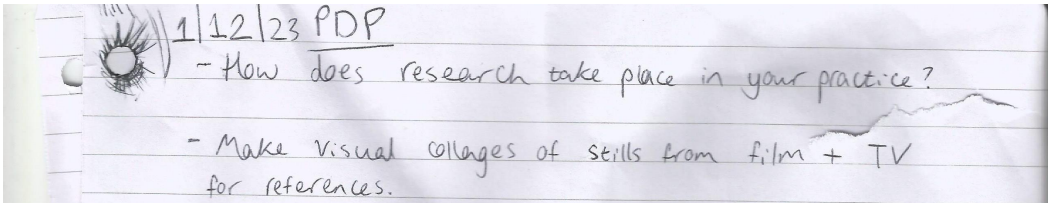 1/12/23 PDP
- How does research take place in your practice?
- Make visual collages of stills from film + TV
for references.